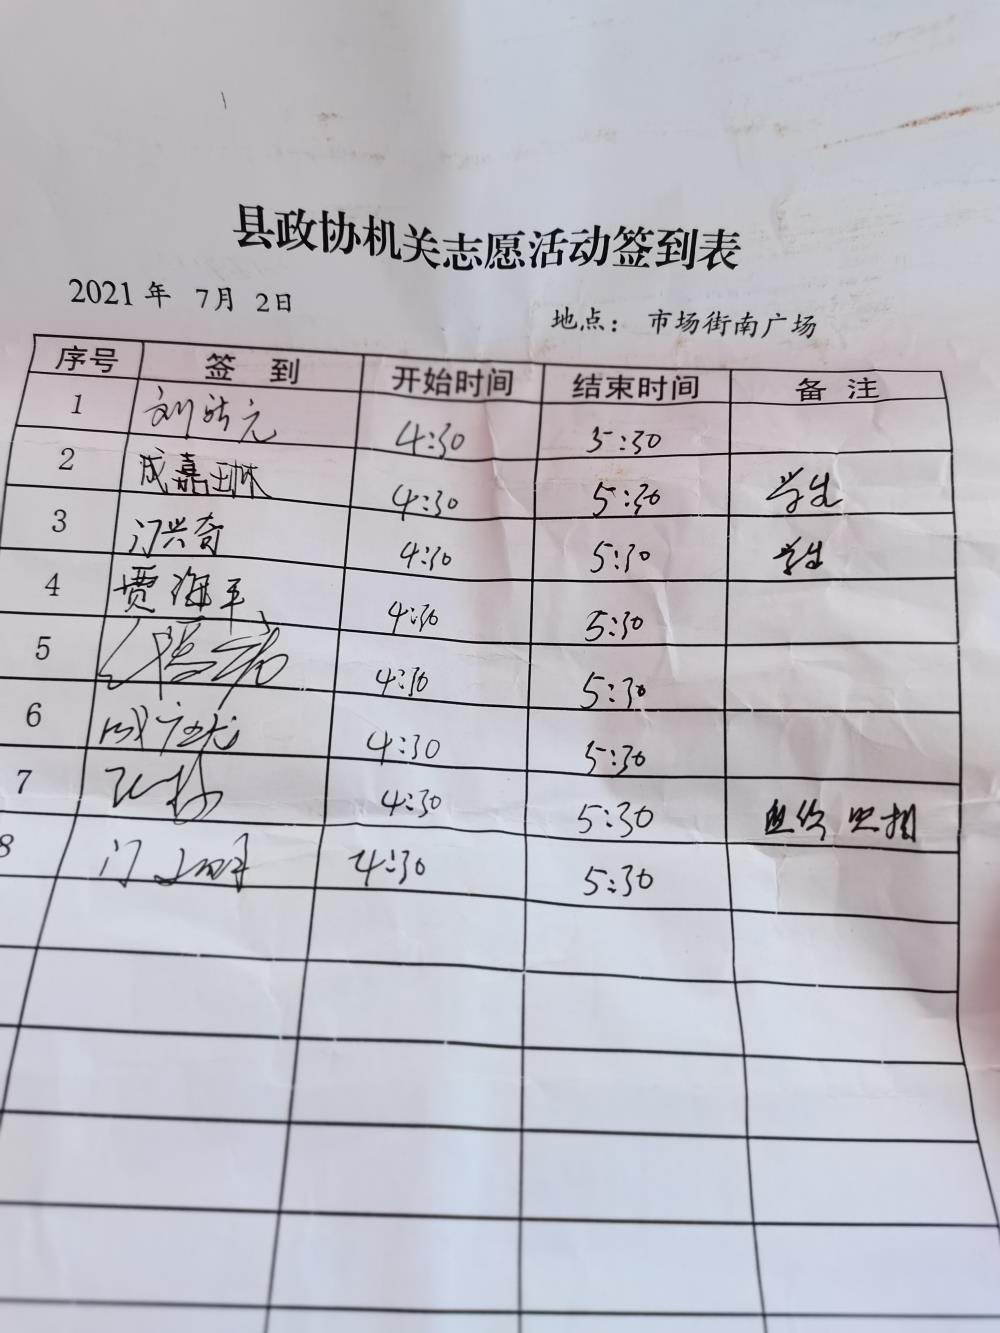 县政协机关志愿活动签到表
2021年 7月 2日 地点：市场街南广场
序号 签到 开始时间 结束时间 备注
1 4:30 5:30
2 成嘉琳 4:30 5:30 学生
3 门兴奇 4:30 5:30 学生
4 贾海平 4:30 5:30
5 4:30 5:30
6 4:30 5:30
7 4:30 5:30 照相
8 门 4:30 5:30